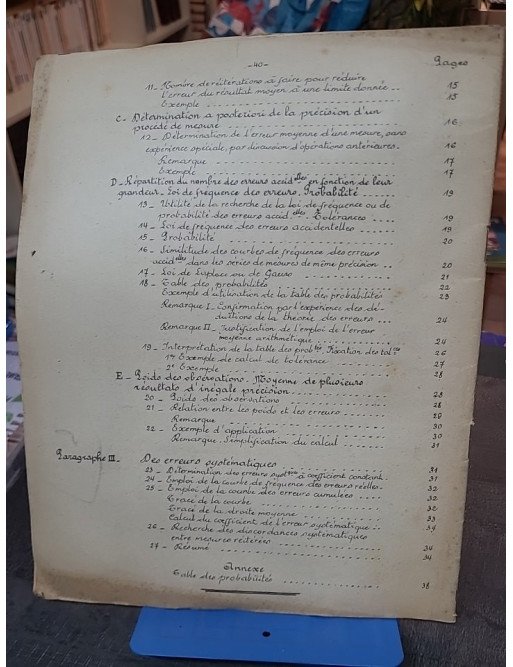 -40-
Pages
11 _ Nombre de réitérations à faire pour réduire
l'erreur du résultat moyen à une limite donnée .. 15
Exemple ........ 15
C _ Détermination a posteriori de la précision d'un
procédé de mesure ........ 16
12 _ Détermination de l'erreur moyenne d'une mesure, sans
expérience spéciale, par discussion d'opérations antérieures. 16
Remarque ........ 17
Exemple ........ 17
D _ Répartition du nombre des erreurs accid.elles en fonction de leur
grandeur _ Loi de fréquence des erreurs. Probabilité ........ 19
13 _ Utilité de la recherche de la loi de fréquence ou de
probabilité des erreurs accid.elles Tolérances ........ 19
14 _ Loi de fréquence des erreurs accidentelles ........ 19
15 _ Probabilité ........ 20
16 _ Similitude des courbes de fréquence des erreurs
accid.elles dans les séries de mesures de même précision .. 20
17 _ Loi de Laplace ou de Gauss ........ 21
18 _ Table des probabilités ........ 22
Exemple d'utilisation de la table des probabilités 23
Remarque I _ Confirmation par l'expérience des dé-
ductions de la théorie des erreurs ........ 24
Remarque II _ Justification de l'emploi de l'erreur
moyenne arithmétique ........ 24
19 _ Interprétation de la table des prob.tés Fixation des tol.ces 26
1er Exemple de calcul de tolérance ........ 27
2e Exemple ........ 28
E _ Poids des observations. Moyenne de plusieurs
résultats d'inégale précision ........ 28
20 _ Poids des observations ........ 28
21 _ Relation entre les poids et les erreurs ........ 29
Remarque ........ 30
22 _ Exemple d'application ........ 30
Remarque. Simplification du calcul ........ 31
Paragraphe III _ Des erreurs systématiques ........ 31
23 _ Détermination des erreurs syst.ques à coefficient constant. 31
24 _ Emploi de la courbe de fréquence des erreurs réelles. 32
25 _ Emploi de la courbe des erreurs cumulées .. 32
Tracé de la courbe ........ 32
Tracé de la droite moyenne ........ 33
Calcul du coefficient de l'erreur systématique .. 34
26 _ Recherche des discordances systématiques
entre mesures réitérées ........ 34
27 _ Résumé ........ 34
Annexe
Table des probabilités ........ 38